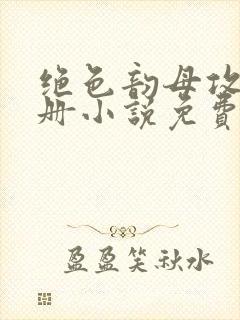 绝色韵母攻
册小説免費
盈盈笑秋水